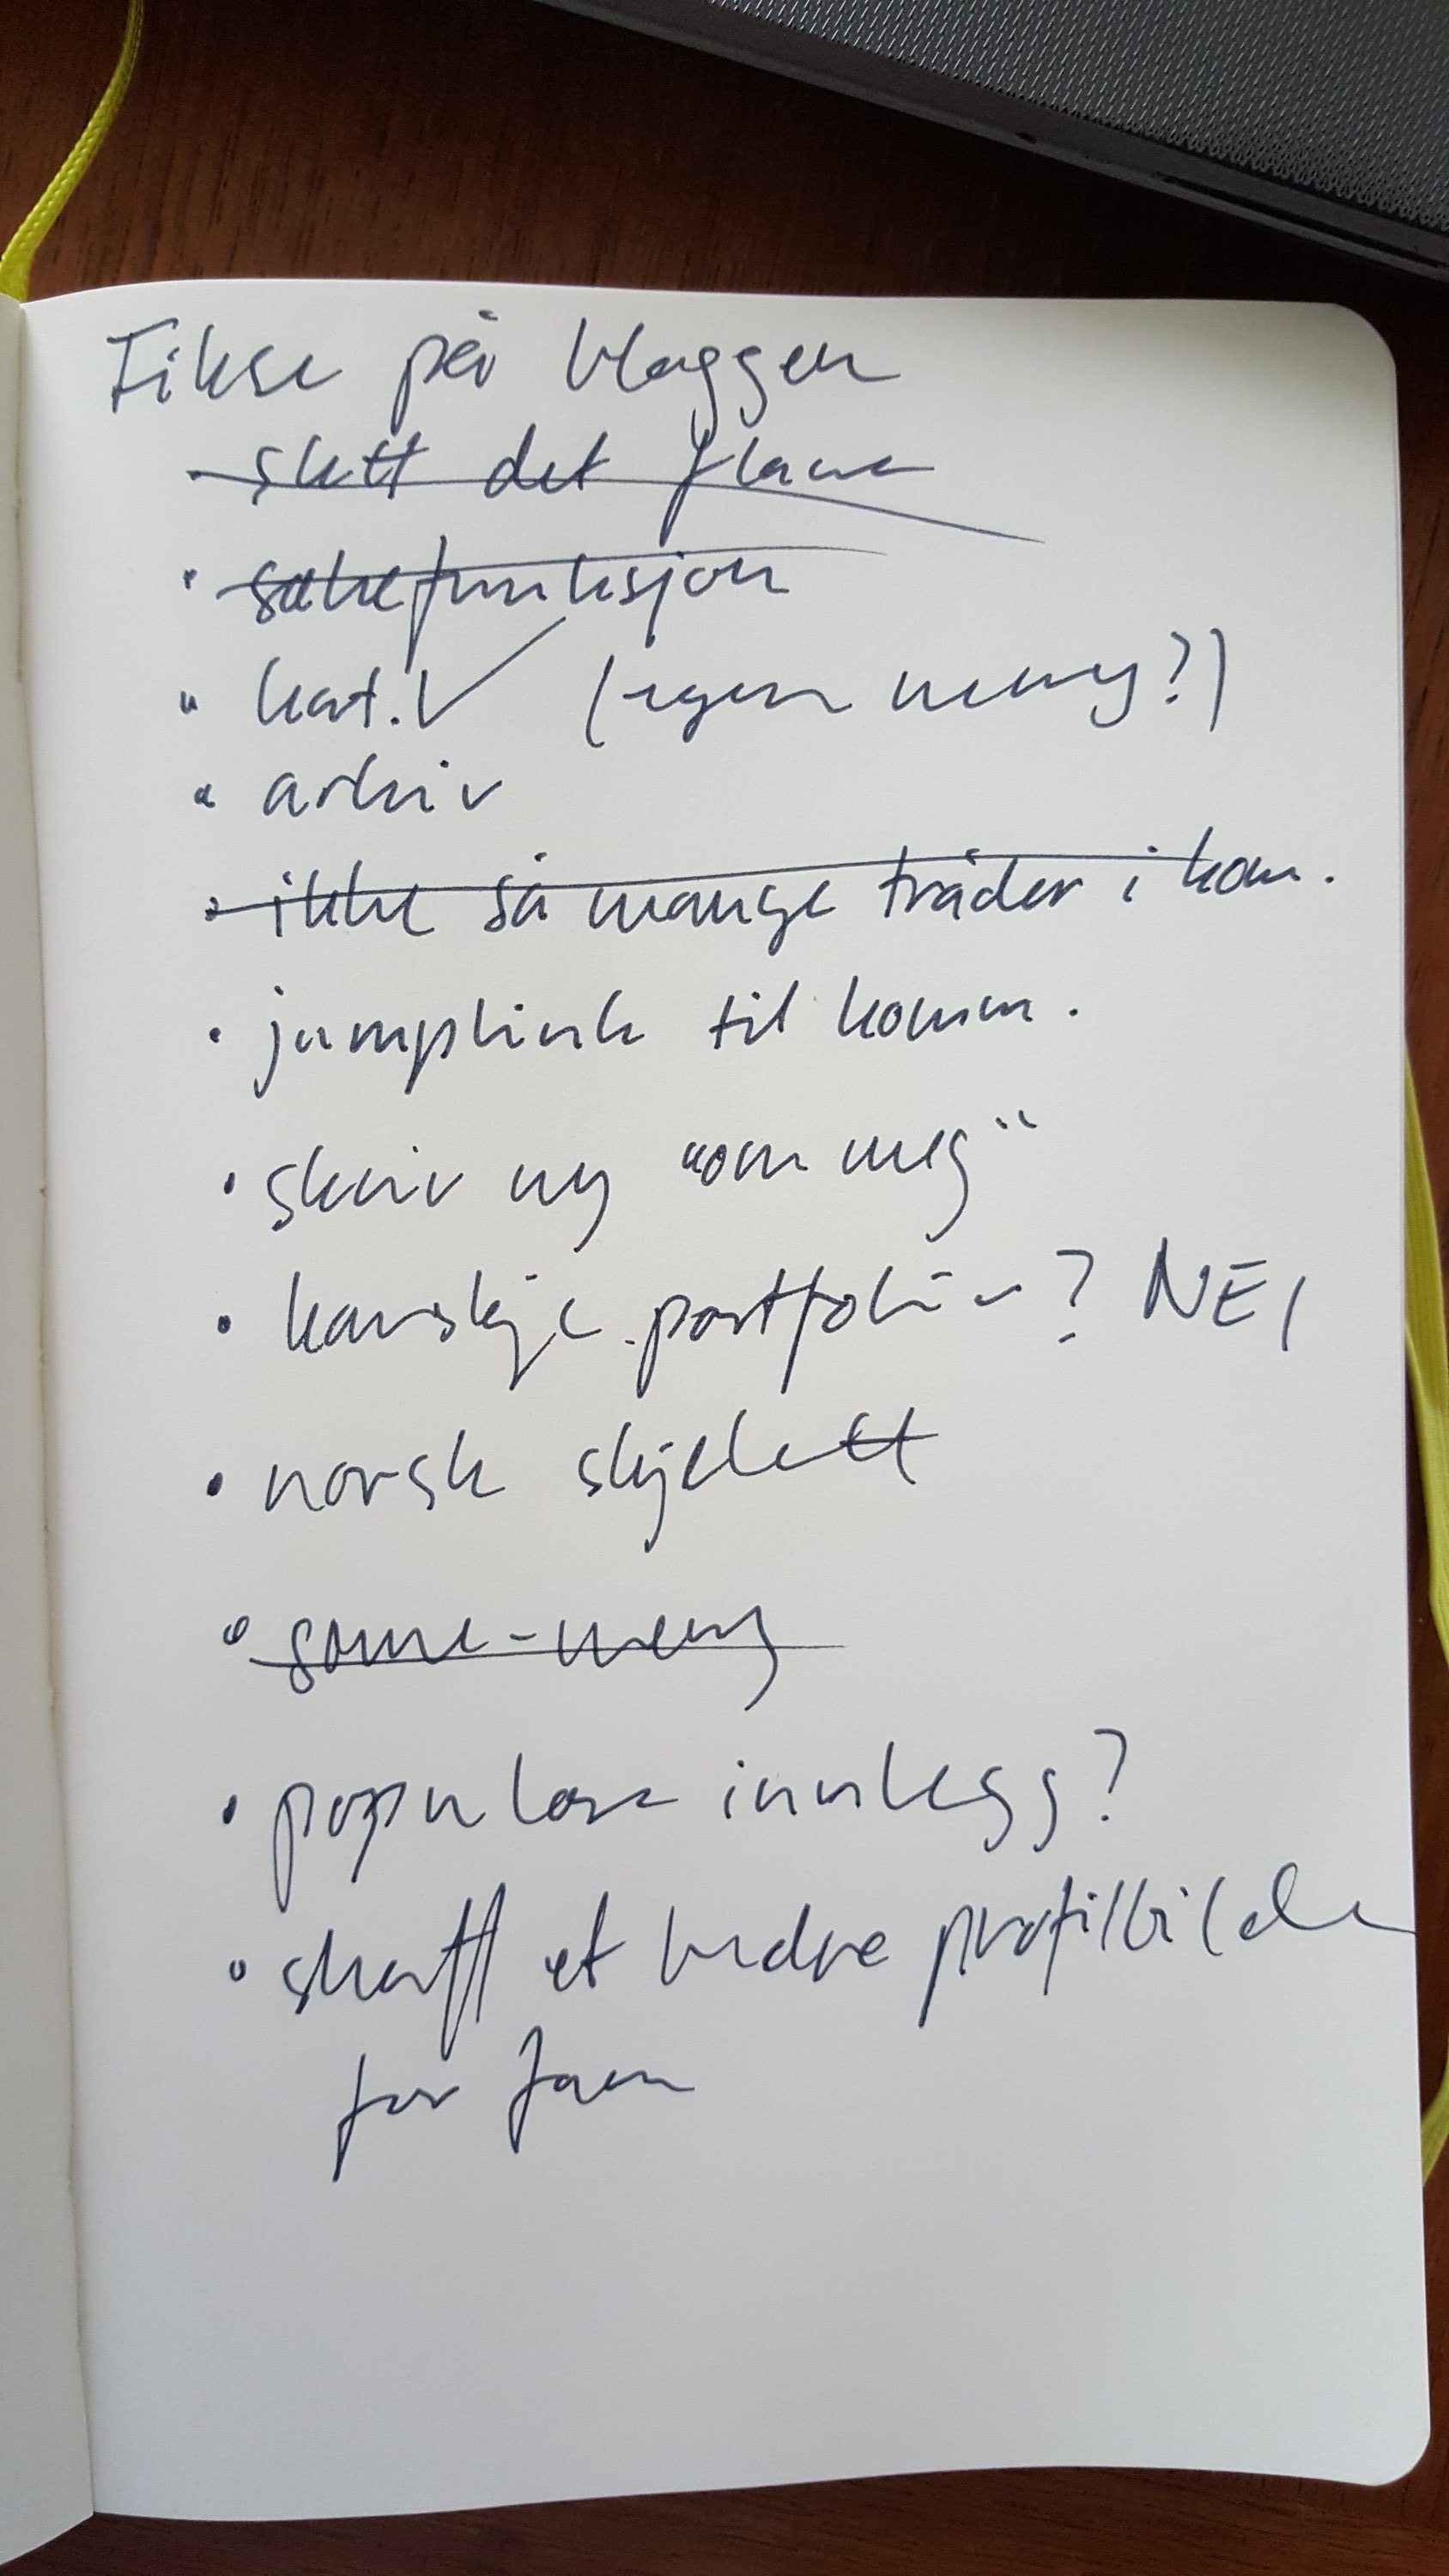 Fikse på bloggen
- slett det
· søkefunksjon
· kat. ✓ (egen meny?)
· arkiv
· ikke så mange tråder i kom.
· jumplink til komm.
· skriv ny "om meg"
· kanskje portfolio? NEI
· norsk skjelett
· some-meny
· populære innlegg?
· skaff et bedre profilbilde
for faen